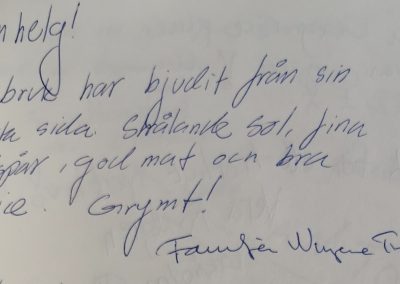 n helg!
bruk har bjudit från sin
ta sida. Strålande sol, fina
spår, god mat och bra
ice. Grymt!
Familjen